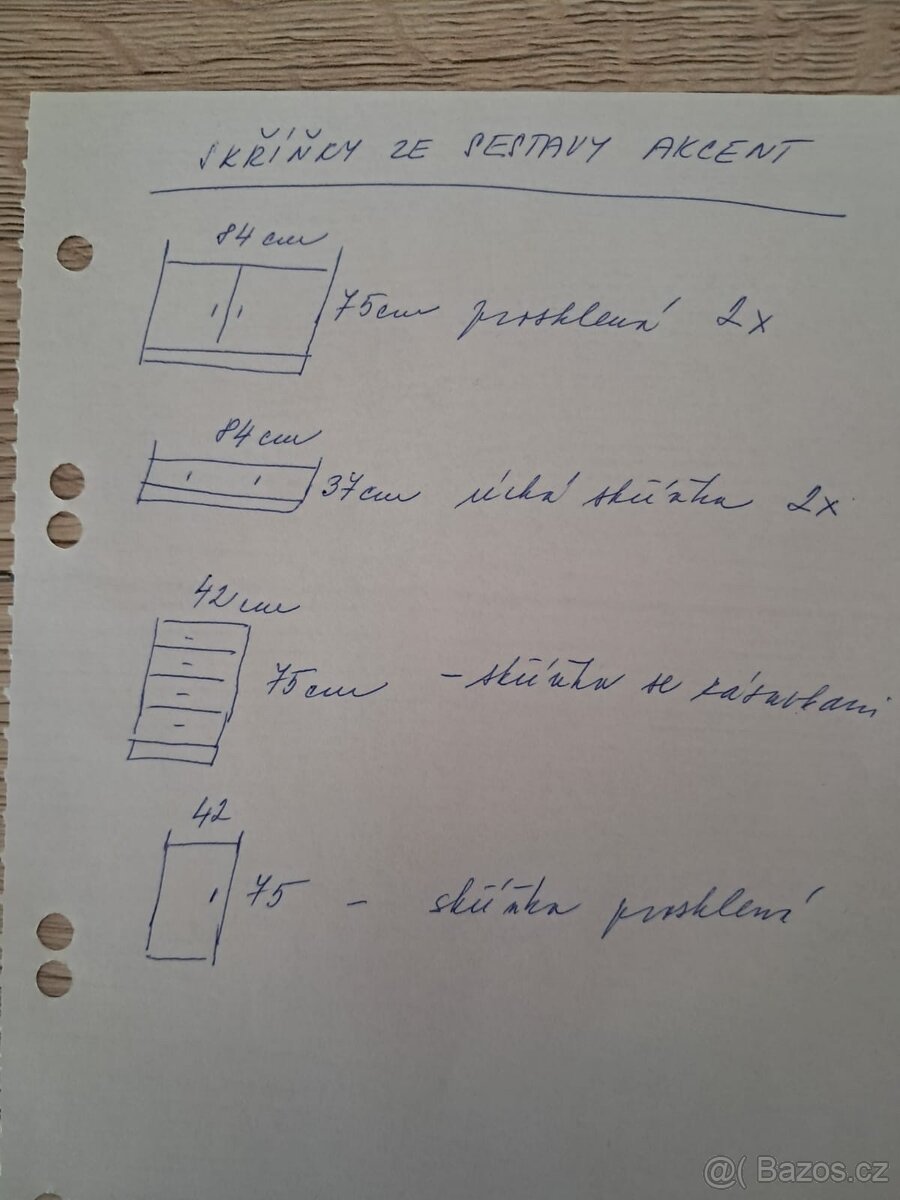 SKŘÍŇKY ZE SESTAVY AKCENT
84 cm
75cm prosklená 2x
84 cm
37cm úzká skříňka 2x
42 cm
75cm - skříňka se zásuvkami
42
75 - skříňka prosklená
@( Bazos.cz